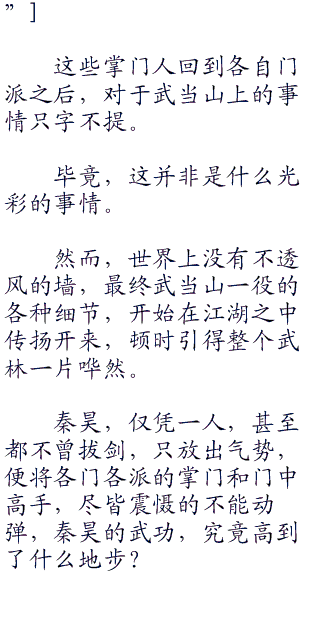 ”]
这些掌门人回到各自门
派之后，对于武当山上的事
情只字不提。
毕竟，这并非是什么光
彩的事情。
然而，世界上没有不透
风的墙，最终武当山一役的
各种细节，开始在江湖之中
传扬开来，顿时引得整个武
林一片哗然。
秦昊，仅凭一人，甚至
都不曾拔剑，只放出气势，
便将各门各派的掌门和门中
高手，尽皆震慑的不能动
弹，秦昊的武功，究竟高到
了什么地步？